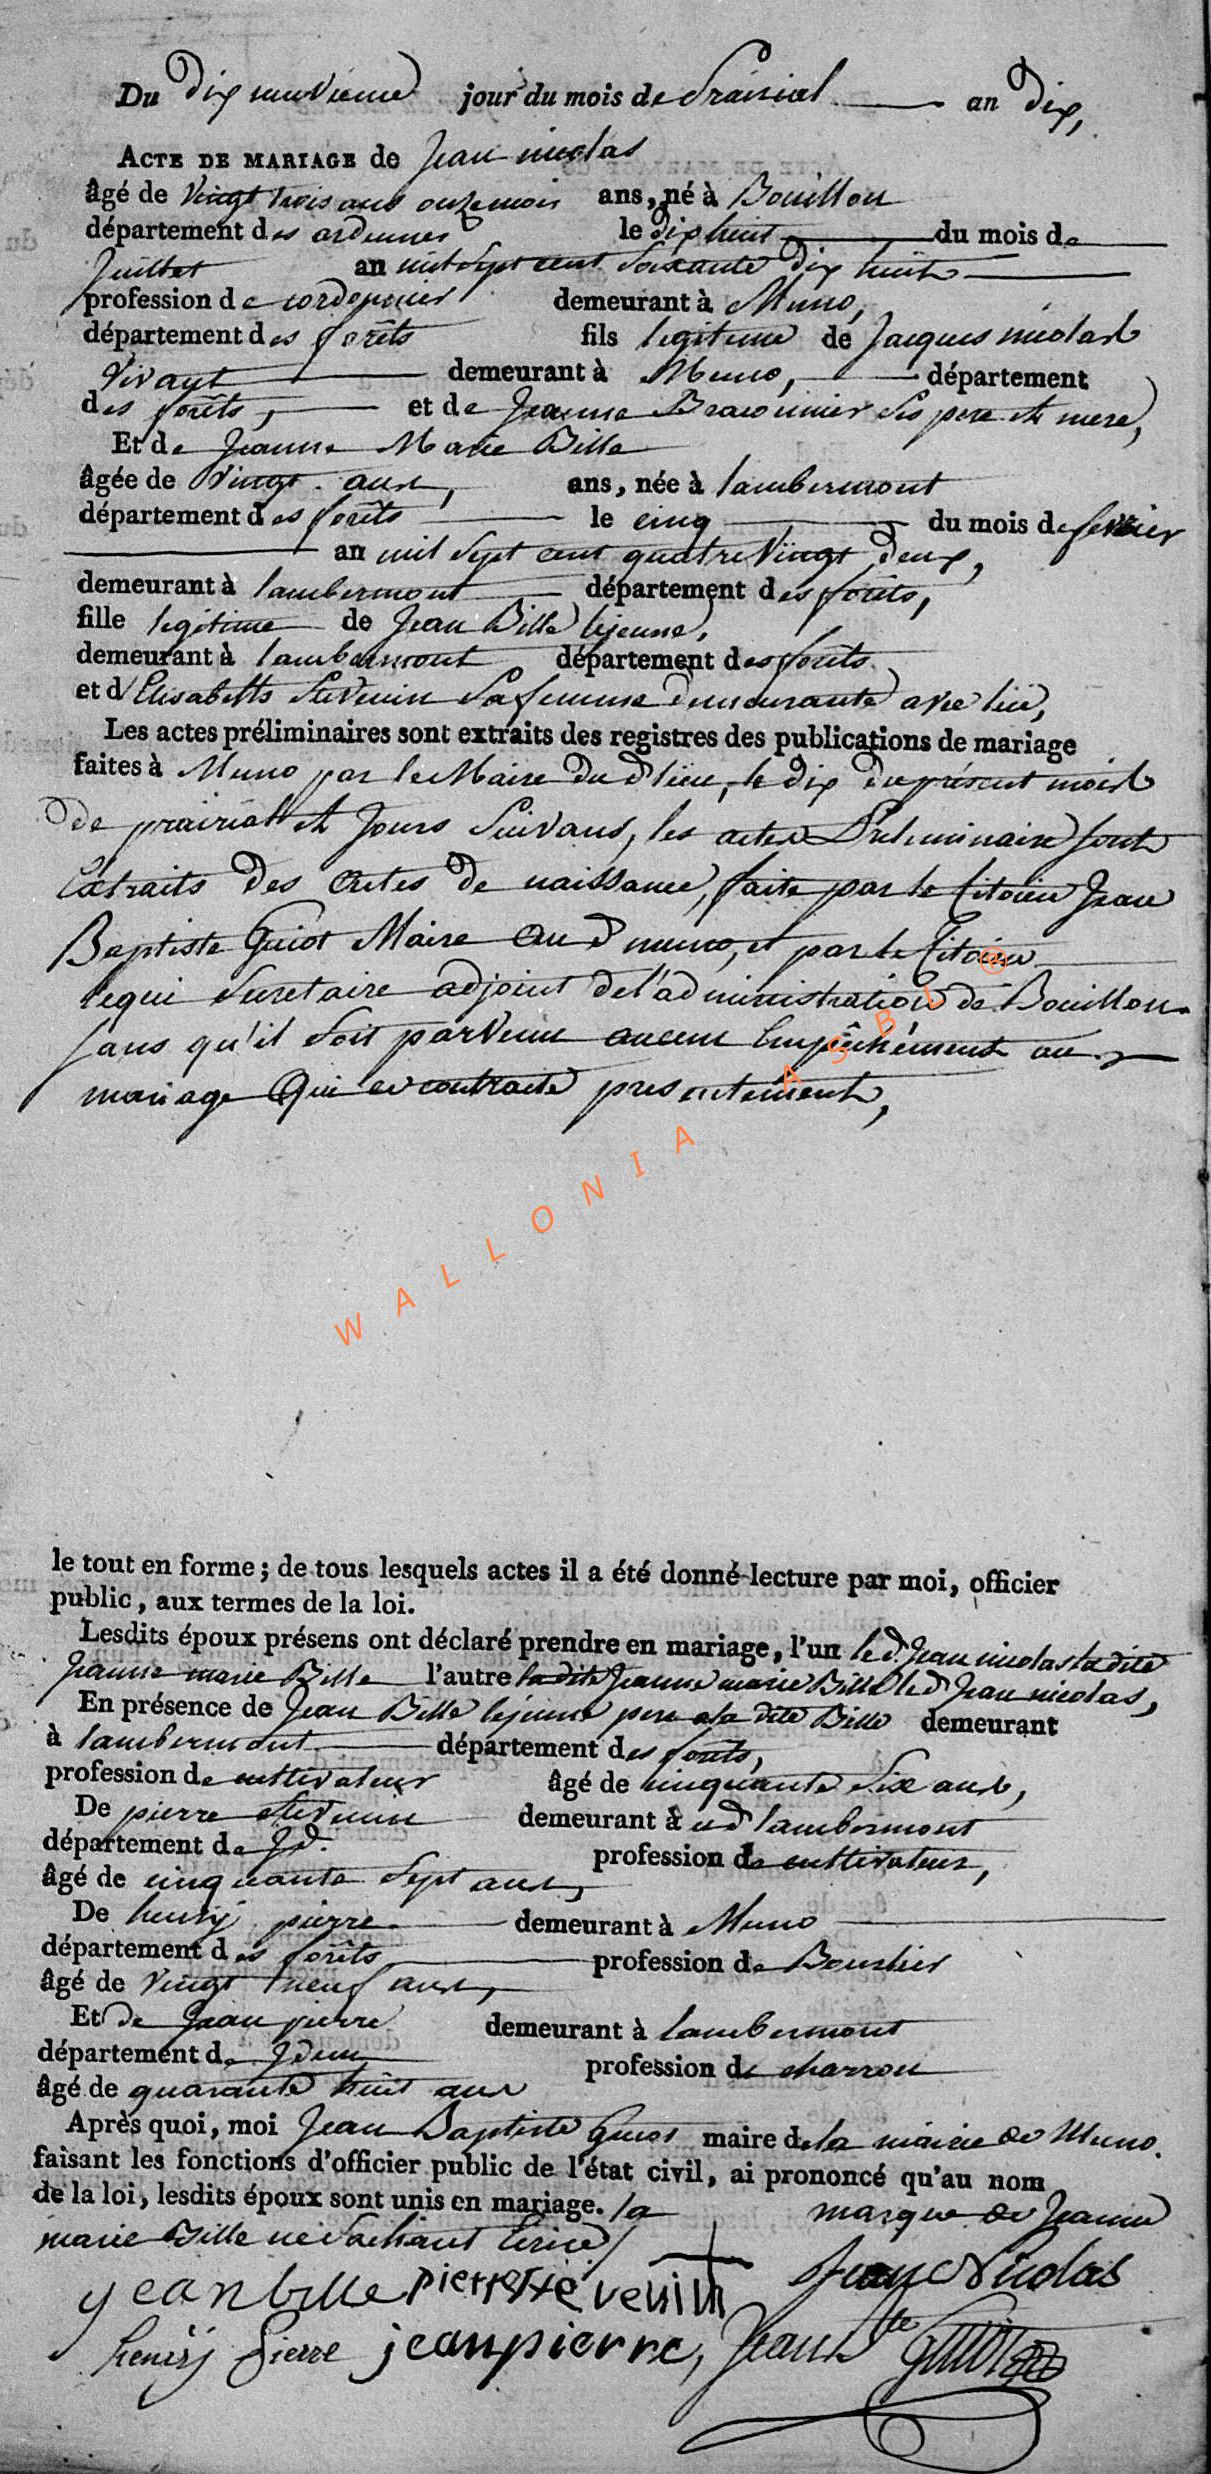 Du dix neuvieme jour du mois de Prairial an dix,
ACTE DE MARIAGE de Jean nicolas
âgé de vingt trois ans onze mois ans, né à Bouillon
département des ardennes le dix huit du mois de
Juillet an mil sept cent soixante dix huit
profession de cordonnier demeurant à Muno,
département des forêts fils legitime de Jacques nicolas
vivant demeurant à Muno, département
des forêts, et de Jeanne Braconnier ses pere et mere,
Et de Jeanne Marie Bille
âgée de vingt ans, ans, née à lambermont
département des forêts le cinq du mois de fevrier
an mil sept cent quatre vingt deux,
demeurant à lambermont département des forêts,
fille legitime de Jean Bille lejeune,
demeurant à lambermont département des forêts
et d'Elisabeth Stevenin sa femme demeurante avec lui,
Les actes préliminaires sont extraits des registres des publications de mariage
faites à Muno par le Maire du d lieu, le dix du présent mois
de prairial et Jours suivans, les actes Preliminaire sont
Extraits des actes de naissance, faite par le Citoien Jean
Baptiste Guiot Maire au d muno, et par le Citoien
lequi Secretaire adjoint de l'administration de Bouillon
sans qu'il soit parvenu aucun Empêchement au
mariage Qui se contracte presentement,
WALLONIA ASBL ®
le tout en forme; de tous lesquels actes il a été donné lecture par moi, officier
public, aux termes de la loi.
Lesdits époux présens ont déclaré prendre en mariage, l'un le d. Jean nicolas ladite
Jeanne marie Bille l'autre ladite Jeanne marie Bille le d Jean nicolas,
En présence de Jean Bille lejeune pere a la dite Bille demeurant
à lambermont département des forêts,
profession de cultivateur âgé de cinquante six ans,
De pierre stevenin demeurant à ud lambermont
département de Jd. profession de cultivateur,
âgé de cinquante sept ans,
De henry pierre demeurant à Muno
département des forêts profession de Boucher
âgé de vingt neuf ans,
Et de Jean pierre demeurant à lambermont
département de Jdem profession de charron
âgé de quarante huit ans
Après quoi, moi Jean Baptiste Guiot maire de la mairie de Muno.
faisant les fonctions d'officier public de l'état civil, ai prononcé qu'au nom
de la loi, lesdits époux sont unis en mariage. la marque de Jeanne
marie Bille ne sachant Ecrire
yean bille pierre stevenin Jean Nicolas
henrij Pierre jean pierre, Jean Bte Guiot